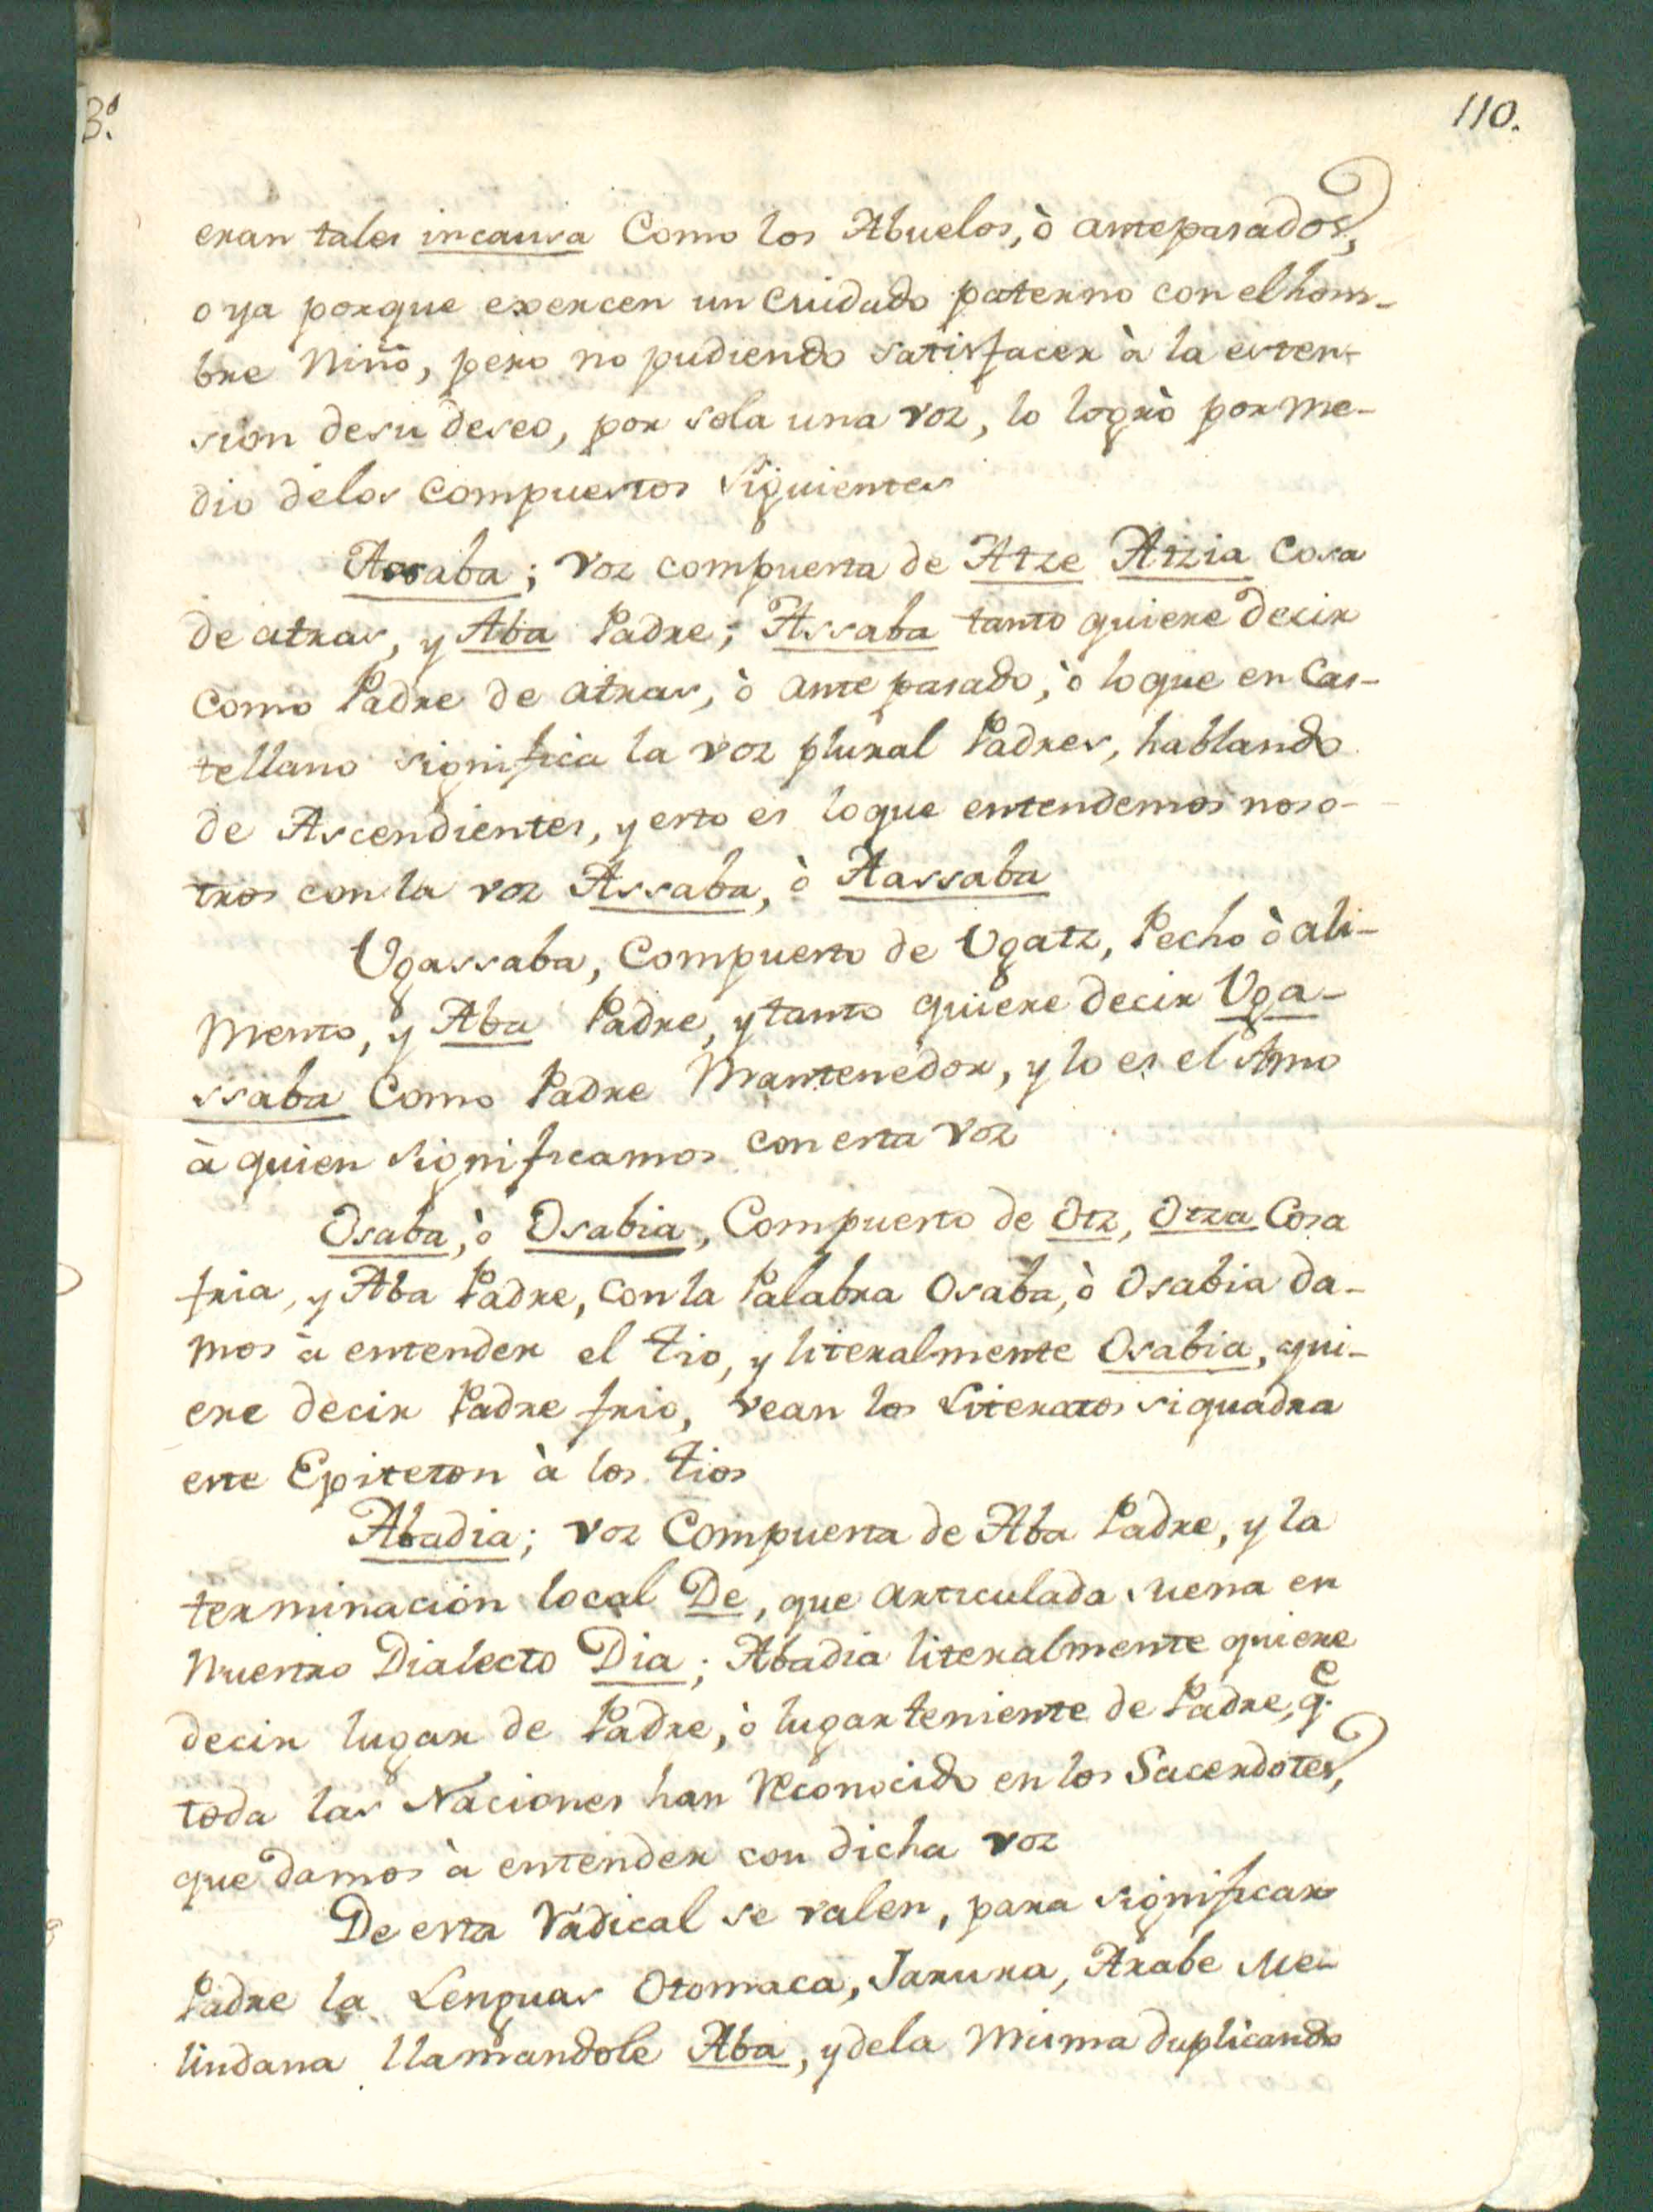 3.º
110.
eran tales incausa Como los Abuelos, ò antepasados,
o ya porque exercen un Cuidado paterno con el hom-
bre Niño, pero no pudiendo satisfacer à la esten-
sion desu deseo, por sola una voz, lo logrò por me-
dio delos compuestos siguientes
Assaba; voz compuesta de Atze Atzia Cosa
de atras, y Aba Padre; Assaba tanto quiere decir
Como Padre de atras, ò ante pasado, ò loque en Cas-
tellano significa la voz plural Padres, hablando
de Ascendientes, y esto es loque entendemos noso-
tros con la voz Assaba, ò Aassaba
Ugassaba, Compuesto de Ugatz, Pecho ò ali-
mento, y Aba Padre, y tanto quiere decir Uga-
ssaba Como Padre Mantenedor, y lo es el Amo
à quien significamos con esta voz
Osaba, ò Osabia, Compuesto de Otz, Otza Cosa
fria, y Aba Padre, con la Palabra Osaba, ò Osabia da-
mos à entender el tio, y literalmente Osabia, qui-
ere decir Padre frio, vean los Literatos si quadra
este Epiteton à los tios
Abadia; voz Compuesta de Aba Padre, y la
terminacion local De, que articulada suena en
Nuestro Dialecto Dia; Abadia literalmente quiere
decir lugar de Padre, ò lugar teniente de Padre, q.e
toda las Naciones han Reconocido en los Sacerdotes,
que damos à entender con dicha voz
De esta Radical se valen, para significar
Padre la Lenguas Otomaca, Jarura, Arabe Me-
lindana llamandole Aba, y dela misma duplicando